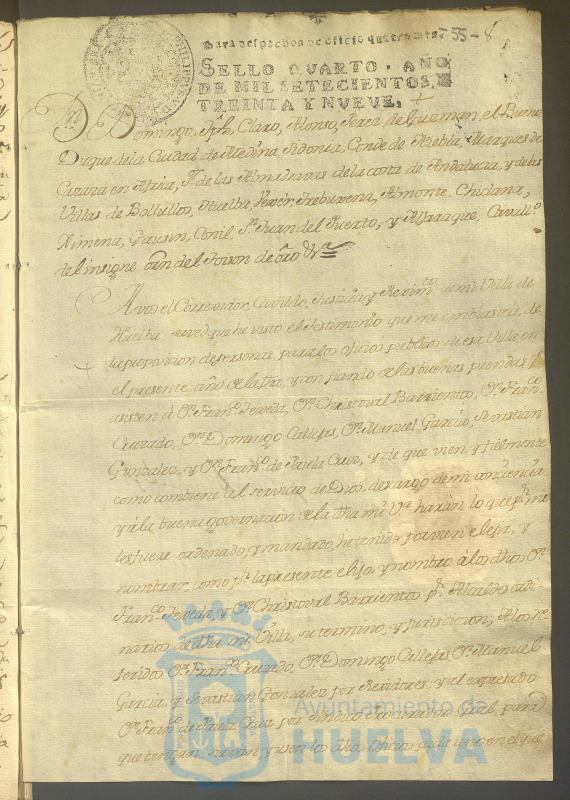 Para despachos de oficio quatro mrs. 755-8
SELLO QVARTO, AÑO
DE MIL SETECIENTOS, Y
TREINTA Y NVEVE,
Dn Domingo, Claro, Alonso, Perez de Guzman, el Bueno
Duque de la Ciudad de Medina, Sidonia, Conde de Niebla, Marques de
Cazaza en Africa, Sr. de las Almadravas de la costa de Andalucia, y de las
Villas de Bollullos, Huelba, Trebuxena, Almonte, Chiclana,
Ximena, Gausin, Conil, Sn Juan del Puerto, y Aljaraque, Cavallo.
del insigne orn del Toison de oro &a
A vos el Correxidor, Cavildo, Justicia, y Reximto de mi Villa de
Huelba saved que he visto el testimonio que me embiasteis, de
la proposicion de personas para los oficios publicos de esa Villa en
el presente año de la fha, y confiando de las buenas prendas q
asisten á Dn Franco. Poveda, Dn Christoval Barriento, Dn Franco
Cruzado, Dn Domingo Callejas, Dn Manuel Garcia, Sevastian
Gonzalez, y Dn Franco. de Paula Cruz, y de que vien, y fielmente
como combiene al servicio de Dios, descargo de mi conciencia
y á la buena governacion de la dha mi Va haran lo que pr mi
les fuese ordenado, y mandado, he tenido por vien elejir, y
nombrar, como pr la presente elijo, y nombro a los dhos Dn
Franco Poveda, y Dn Christoval Barrientos pr Alcaldes ordi
narios de dha mi Villa, su termino, y jurisdicion; A los re
feridos Dn Franco Cruzado, Dn Domingo Callejas Dn Manuel
Garcia, y Sevastian Gonzalez por Rexidores; y al expresado
Dn Franco de Paula Cruz por sindico Procurador Gral, para
que tengan y usen los dhos oficios cada uno en el que
Ayuntamiento de
HUELVA